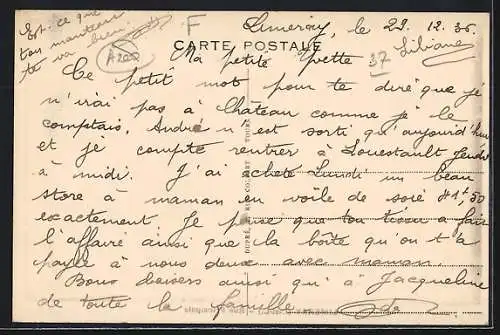 Est-ce que
ton manteau
te va bien.
A200
F
Limeray, le 29. 12. 36.
CARTE POSTALE
37
Liliane
Ma petite Yvette
Ce petit mot pour te dire que je
n'irai pas à Château comme je le
comptais. André n'est sorti qu'aujourd'hui
et je compte rentrer à Louestault Jeudi
à midi. J'ai acheté Lundi un beau
store à maman en voile de soie
exactement. Je pense que ton tissu a fait
l'affaire ainsi que la boîte qu'on t'a
payée à nous deux avec maman.
Bons baisers ainsi qu'à Jacqueline
de toute la famille.